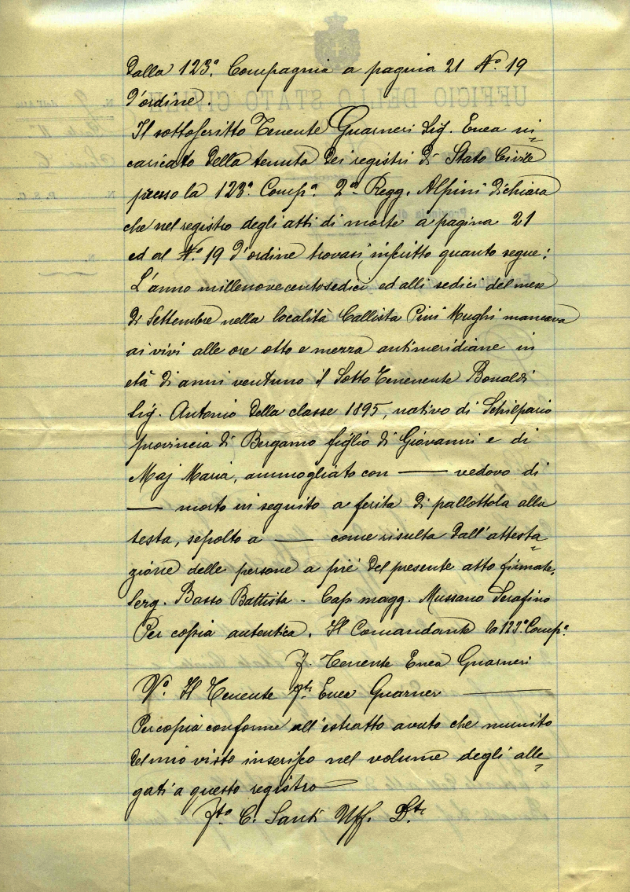 Dalla 123ª Compagnia a pagina 21 Nº 19
d'ordine.
Il sottoscritto Tenente Guarneri Sig. Enea in
caricato della tenuta dei registri di Stato Civile
presso la 123ª Compª 2º Regg. Alpini dichiara
che nel registro degli atti di morte a pagina 21
ed al Nº 19 d'ordine trovasi inscritto quanto segue:
L'anno millenovecentosedici ed alli sedici del mese
di Settembre nella località Callista Pini Mughi mancava
ai vivi alle ore otto e mezza antimeridiane in
età di anni ventuno il Sotto Tenenente Bonaldi
Sig. Antonio della classe 1895, nativo di Schilpario
provincia di Bergamo figlio di Giovanni e di
Maj Maria, ammogliato con — vedovo di
— morto in seguito a ferita di pallottola alla
testa, sepolto a — come risulta dall'attesta=
zione delle persone a pié del presente atto firmate.
Serg. Basso Battista - Cap. magg. Mussano Serafino
Per copia autentica. Il Comandante la 123ª Compª.
F. Tenente Enea Guarneri
Vº Il Tenente fto Enea Guarner —
Per copia conforme all'estratto avuto che munito
del mio visto inserisco nel volume degli alle=
gati a questo registro —
Fto C. Santi Uff. Dto
UFFICIO DELLO STATO CIVILE